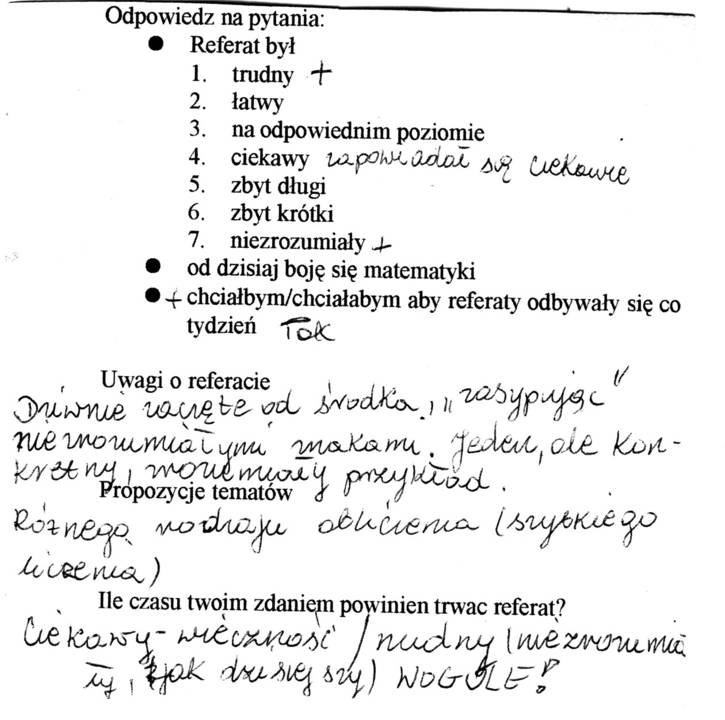 Odpowiedz na pytania:
● Referat był
1. trudny +
2. łatwy
3. na odpowiednim poziomie
4. ciekawy zapowiadał się ciekawie
5. zbyt długi
6. zbyt krótki
7. niezrozumiały +
● od dzisiaj boję się matematyki
● + chciałbym/chciałabym aby referaty odbywały się co
tydzień Tak
Uwagi o referacie
Dziwnie zaczęte od środka, „zasypując”
niezrozumiałymi znakami. Jeden, ale kon-
kretny, zrozumiały przykład.
Propozycje tematów
Różnego rodzaju obliczenia (szybkiego
liczenia)
Ile czasu twoim zdaniem powinien trwac referat?
Ciekawy - wieczność / nudny (niezrozumia
ły, jak dzisiejszy) WOGÓLE!